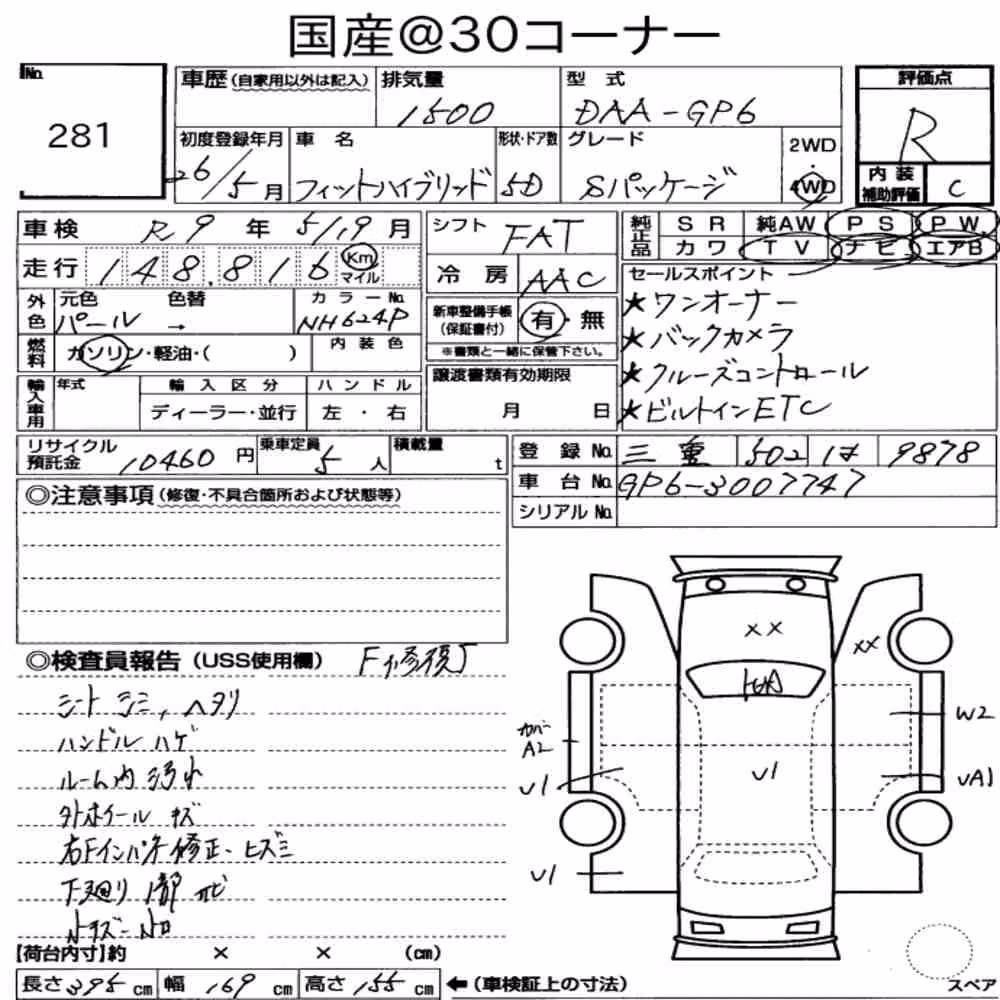 国産@30コーナー
No.
281
車歴(自家用以外は記入)
排気量
1500
型式
DAA-GP6
評価点
R
初度登録年月
26/5月
車名
フィットハイブリッド
形状・ドア数
5D
グレード
Sパッケージ
2WD
・
4WD
内装
補助評価
C
車検
R9年5/19月
シフト
FAT
純正品
SR
純AW
PS
PW
カワ
TV
ナビ
エアB
走行
148,816
Km
マイル
冷房
AAC
セールスポイント
★ワンオーナー
★バックカメラ
★クルーズコントロール
★ビルトインETC
外色
元色
パール
色替
→
カラーNo.
NH624P
新車整備手帳
(保証書付)
有・無
※書類と一緒に保管下さい。
燃料
ガソリン・軽油・( )
内装色
輸入車用
年式
輸入区分
ディーラー・並行
ハンドル
左・右
譲渡書類有効期限
月 日
リサイクル
預託金
10460円
乗車定員
5人
積載量
t
登録No.
三重 502 は 9878
車台No.
GP6-3007747
シリアルNo.
◎注意事項(修復・不具合箇所および状態等)
◎検査員報告(USS使用欄) F修復
シートシミ,ヘタリ
ハンドル ハゲ
ルーム内 汚れ
外ホイール キズ
右Fインパネ修正-ヒズミ
下廻り
××
××
カバー
A2
W2
U1
U1
UA1
U1
【荷台内寸】約 × × (cm)
長さ395cm
幅169cm
高さ155cm
←(車検証上の寸法)
スペア